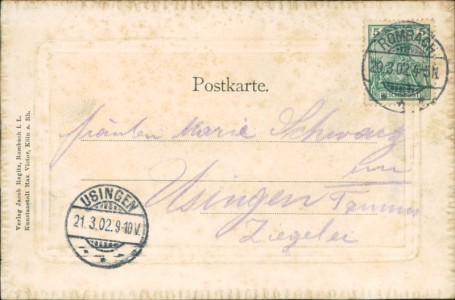 5
ROMBACH
20.3.02.4-5N.
Postkarte.
Fräulein Marie Schwarz
in
Usingen Taunus
Ziegelei
USINGEN
21.3.02.9-10V.
Verlag Jacob Regitz, Rombach i. L.
Kunstanstalt Max Victor, Köln a. Rh.